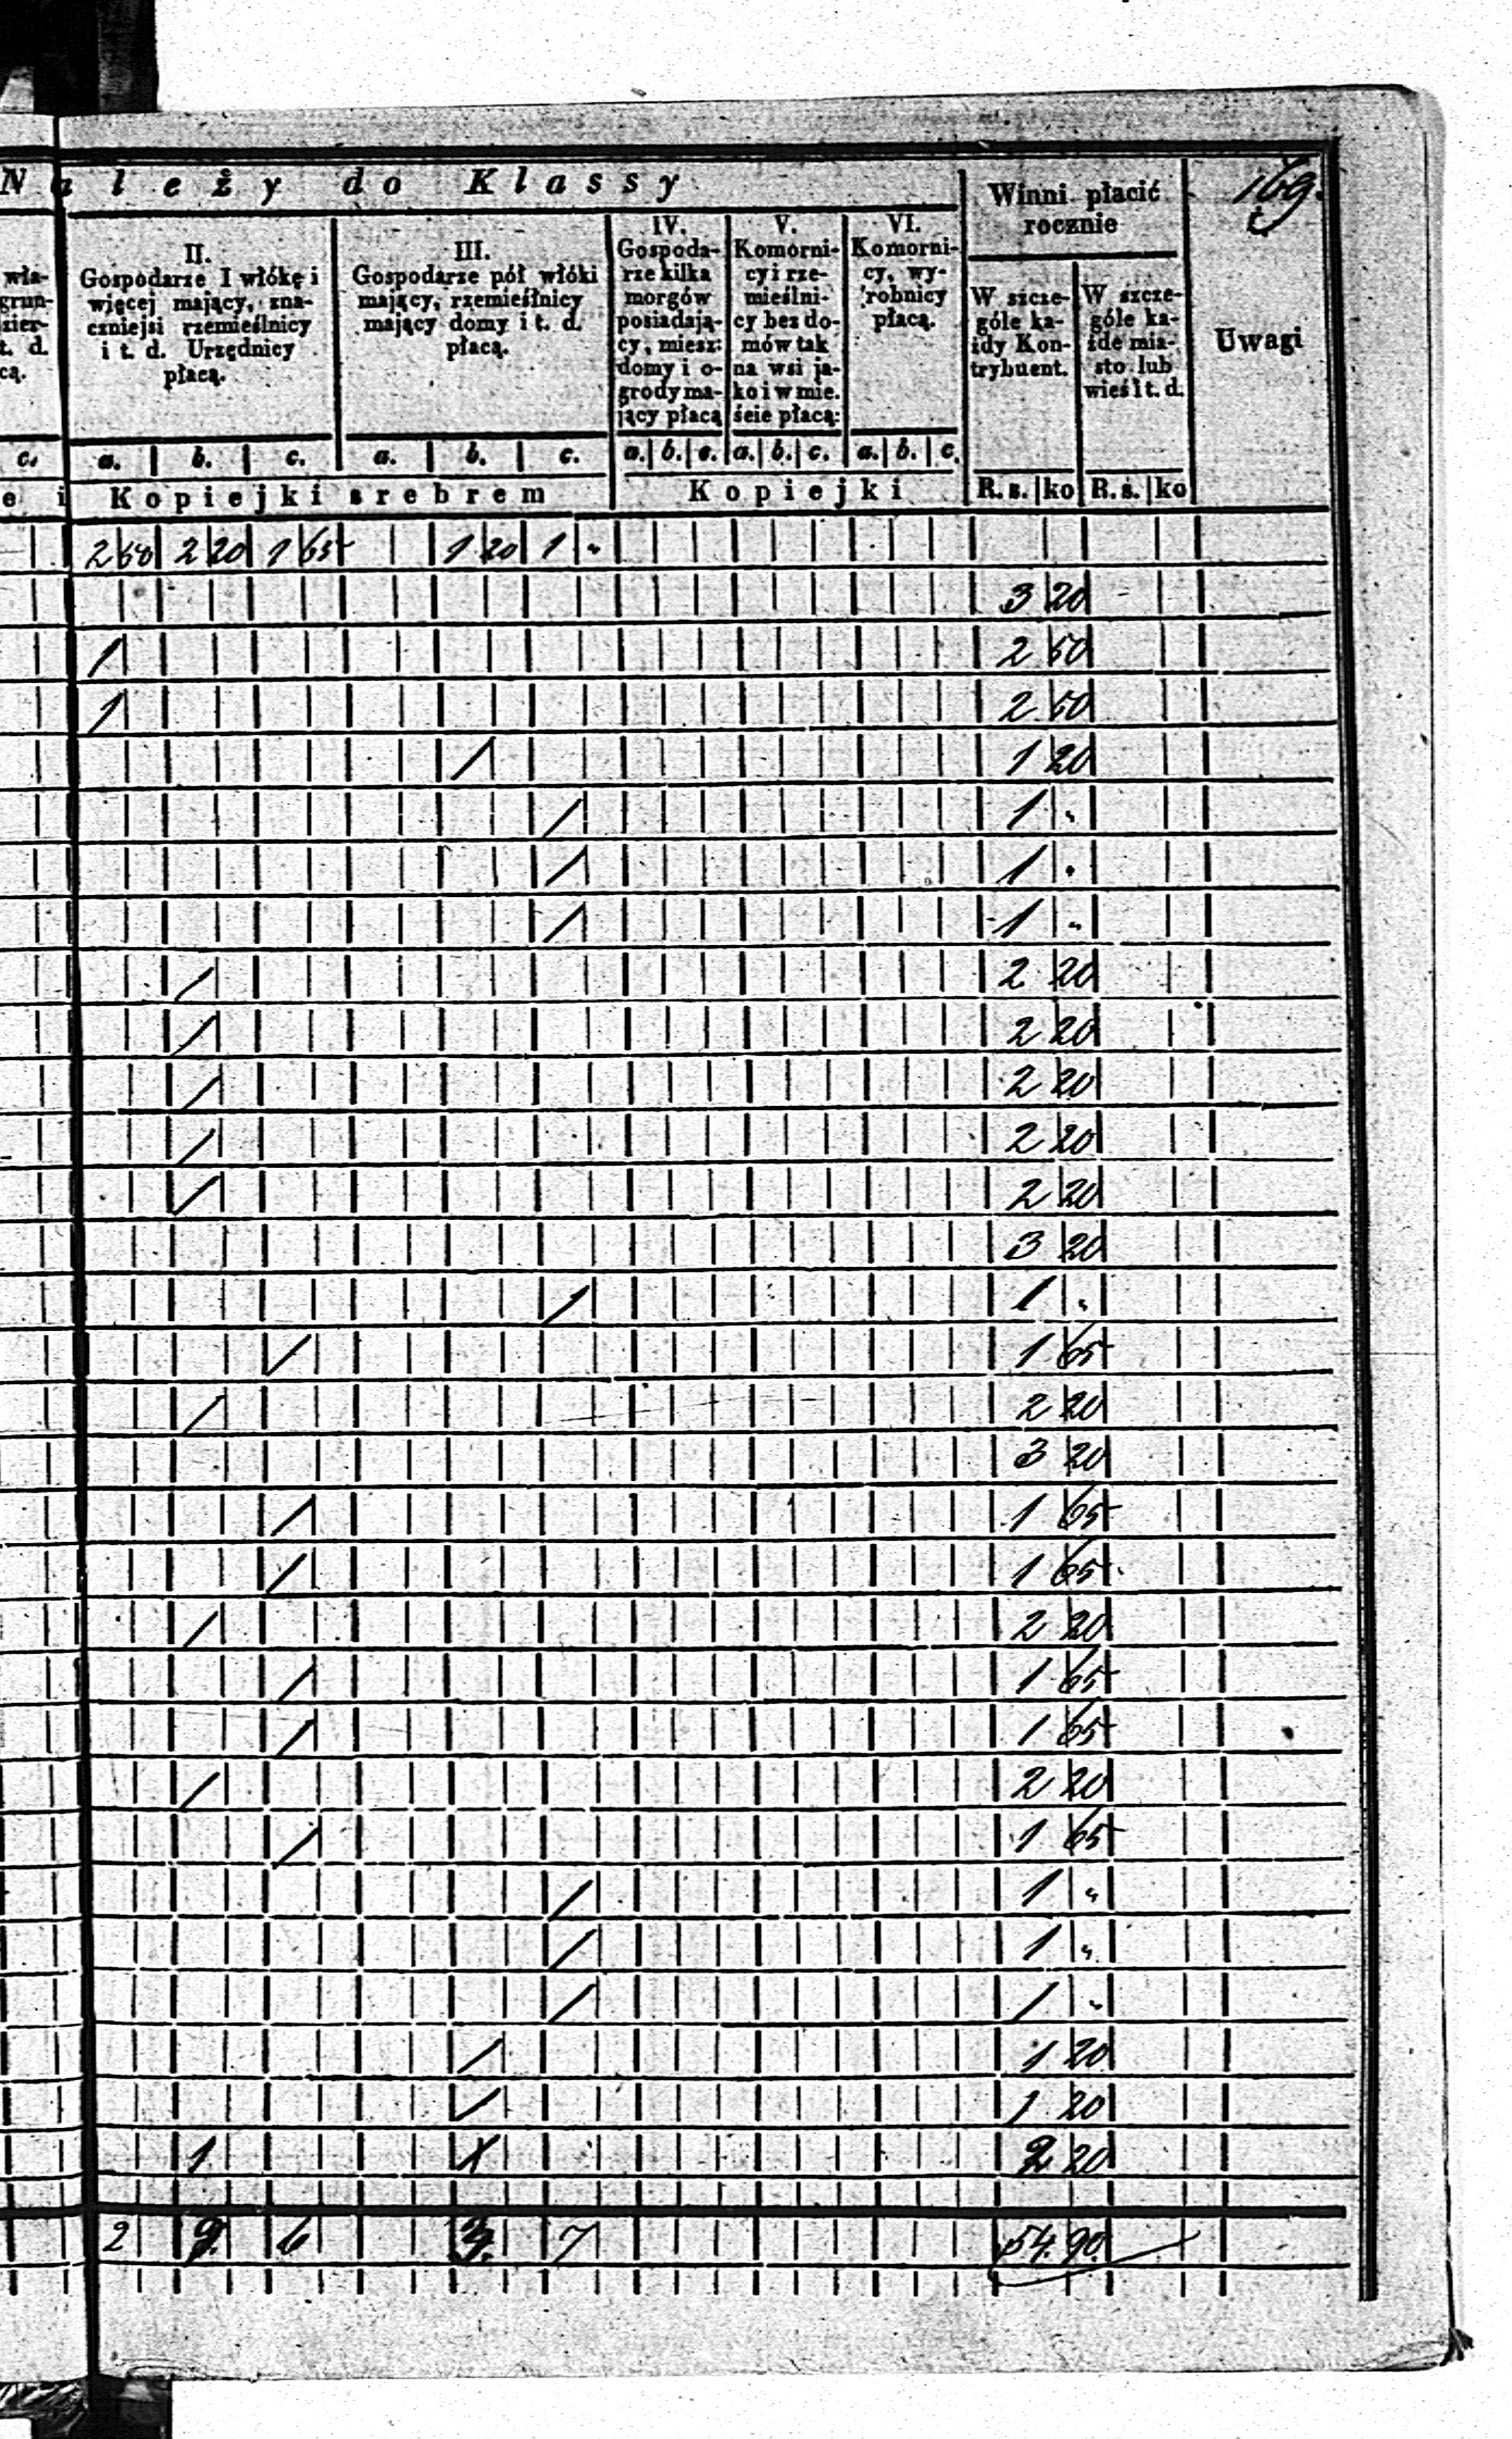 Należy do Klassy
Winni płacić rocznie
169.
wła-
grun-
zier-
t. d.
cą.
II.
Gospodarze I włókę i
więcej mający, zna-
czniejsi rzemieślnicy
i t. d. Urzędnicy
płacą.
III.
Gospodarze pół włóki
mający, rzemieślnicy
mający domy i t. d.
płacą.
IV.
Gospoda-
rze kilka
morgów
posiadają-
cy, miesz:
domy i o-
grody ma-
jący płacą
V.
Komorni-
cy i rze-
mieślni-
cy bez do-
mów tak
na wsi ja-
ko i w mie.
ście płacą:
VI.
Komorni-
cy, wy-
robnicy
płacą.
W szcze-
góle ka-
żdy Kon-
trybuent.
W szcze-
góle ka-
żde mia-
sto lub
wieś i t. d.
Uwagi
c. a. b. c. a. b. c. a. b. c. a. b. c. a. b. c.
e i Kopiejki srebrem Kopiejki R. s. ko R. s. ko
2 50 2 20 1 65 1 20 1 "
3 20
1 2 50
1 2 50
/ 1 20
/ 1 "
/ 1 "
/ 1 "
/ 2 20
/ 2 20
/ 2 20
/ 2 20
/ 2 20
3 20
1 1 "
/ 1 65
/ 2 20
3 20
/ 1 65
/ 1 65
/ 2 20
/ 1 65
/ 1 65
/ 2 20
/ 1 65
/ 1 "
/ 1 "
/ 1 "
/ 1 20
/ 1 20
1 2 20
2 9. 6 3. 7 54. 90.